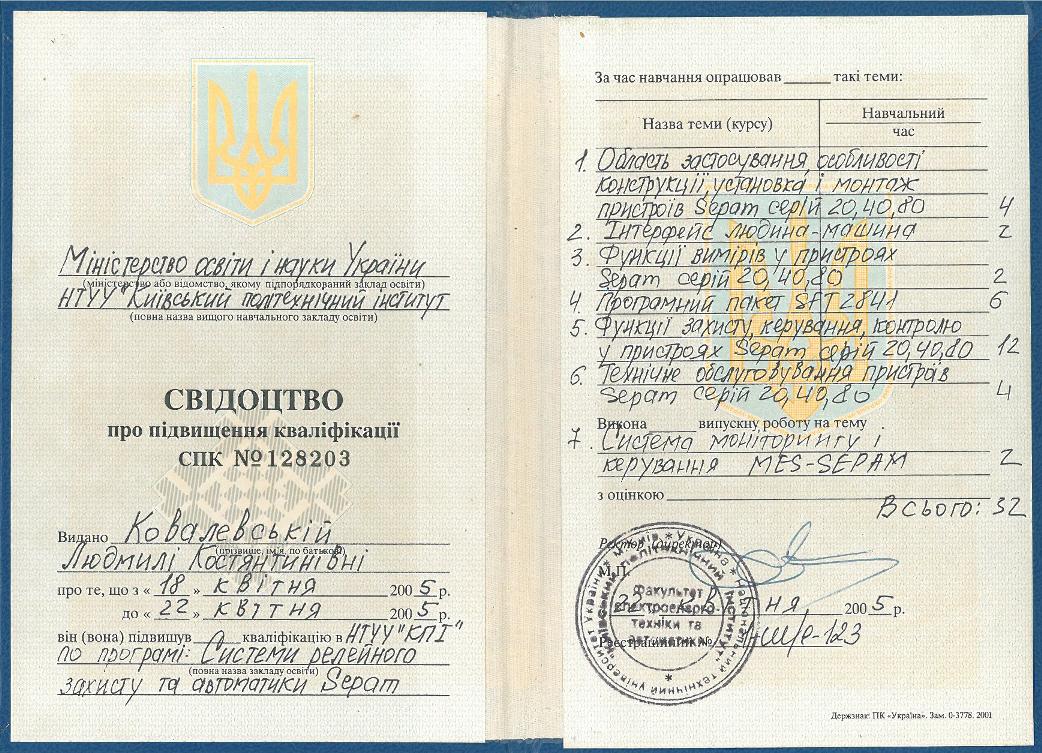 Міністерство освіти і науки України
(міністерство або відомство, якому підпорядкований заклад освіти)
НТУУ "Київський політехнічний інститут
(повна назва вищого навчального закладу освіти)
СВІДОЦТВО
про підвищення кваліфікації
СПК №128203
Видано Ковалевській
(прізвище, ім'я, по батькові)
Людмилі Костянтинівні
про те, що з « 18 » квітня 2005 р.
до « 22 » квітня 2005 р.
він (вона) підвищув____ кваліфікацію в НТУУ "КПІ"
по програмі: Системи релейного
(повна назва закладу освіти)
захисту та автоматики Sepam
За час навчання опрацював ______ такі теми:
Назва теми (курсу)
Навчальний
час
1. Область застосування, особливості
конструкції, установка і монтаж
пристроїв Sepam серій 20,40,80 4
2. Інтерфейс людина-машина 2
3. Функції вимірів у пристроях
Sepam серій 20,40,80 2
4. Програмний пакет SFT 2841 6
5. Функції захисту, керування, контролю
у пристроях Sepam серій 20,40,80 12
6. Технічне обслуговування пристроїв
Sepam серій 20,40,80 4
Викона______ випускну роботу на тему
7. Система моніторингу і
керування MES-SEPAM 2
з оцінкою
Всього: 32
Ректор (директор)
М.П.
2005 р.
Реєстраційний №
-123
Факультет
електроенерго-
техніки та
автоматики
Держзнак: ПК «Україна». Зам. 0-3778. 2001